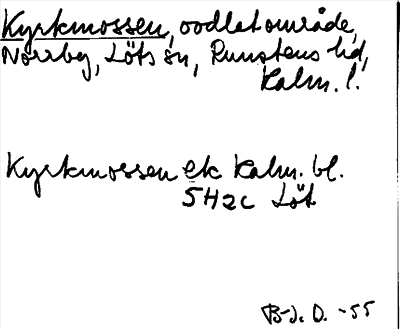 Kyrkmossen, oodlat område,
Norrby, Löts sn, Runstens hd,
Kalm. l.
Kyrkmossen ek Kalm. bl.
5H2c Löt
B-J. D. -55